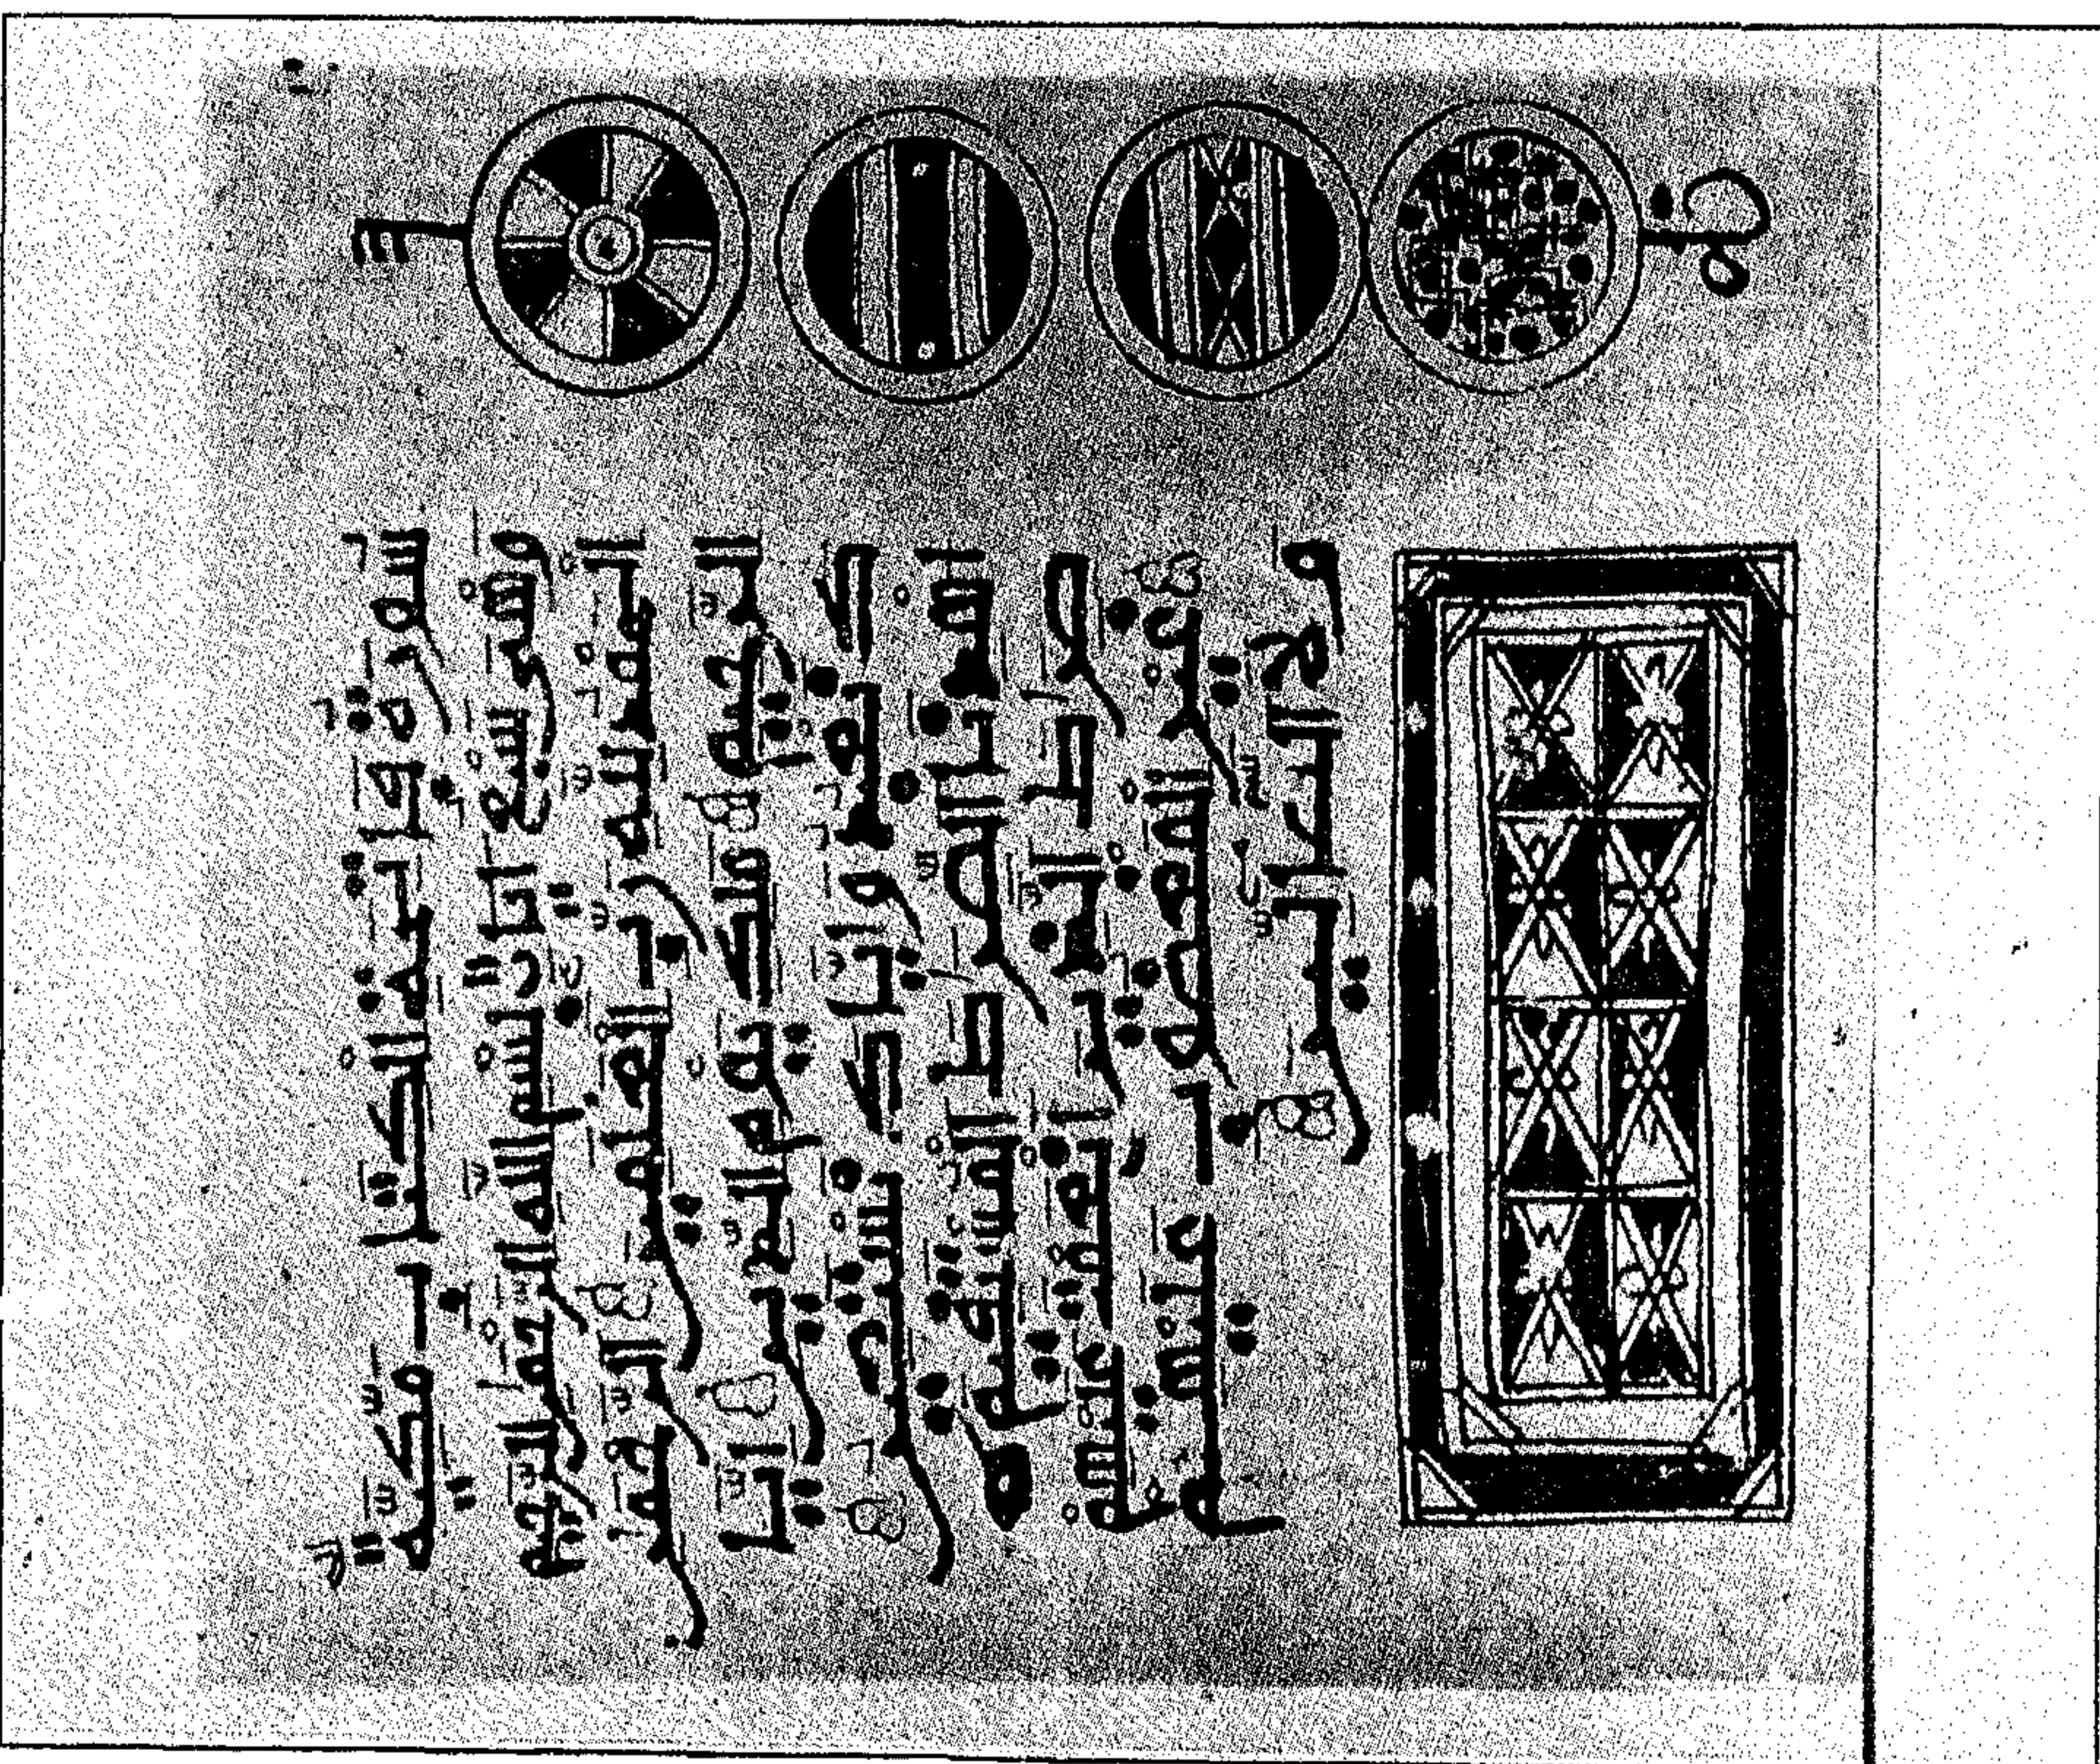 سورة فاتحة الكتاب مكية
وهي سبع ايات بسم الله الرحمن الرحيم
الحمد لله رب العالمين الرحمن
الرحيم ملك يوم الدين ايا
ك نعبد واياك نستعين
اهدنا الصرط المستقيم ص
رط الذين انعمت عليهم
غير المغضوب عليهم
ولا الضالين